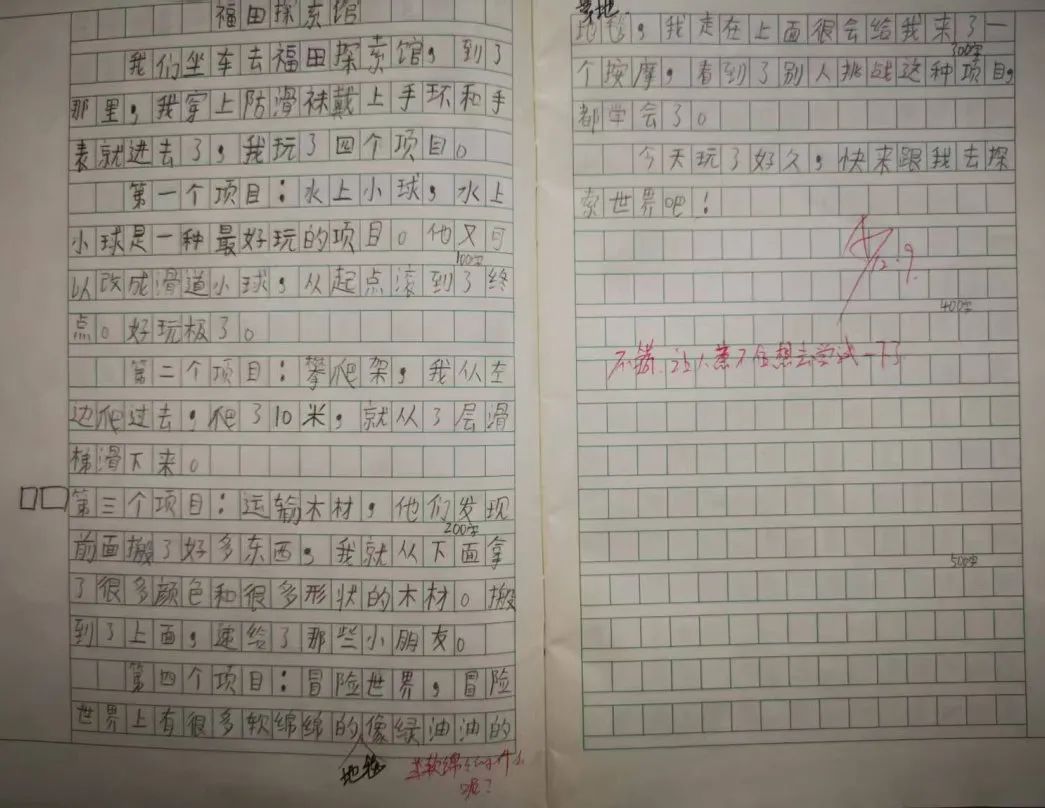 福田探索馆
我们坐车去福田探索馆，到了
那里，我穿上防滑袜戴上手环和手
表就进去了，我玩了四个项目。
第一个项目：水上小球，水上
小球是一种最好玩的项目。他又可
100字
以改成滑道小球，从起点滚到了终
点。好玩极了。
第二个项目：攀爬架，我从左
边爬过去，爬了10米，就从了层滑
梯滑下来。
第三个项目：运输木材，他们发现
200字
前面搬了好多东西，我就从下面拿
了很多颜色和很多形状的木材。搬
到了上面，递给了那些小朋友。
第四个项目：冒险世界，冒险
世界上有很多软绵绵的像绿油油的
地毯
软绵绵的什么
呢？
草地
地毯，我走在上面很会给我来了一
300字
个按摩，看到了别人挑战这种项目，
都学会了。
今天玩了好久，快来跟我去探
索世界吧！
12.9.
400字
不错，让人意不住想去尝试一下了
500字